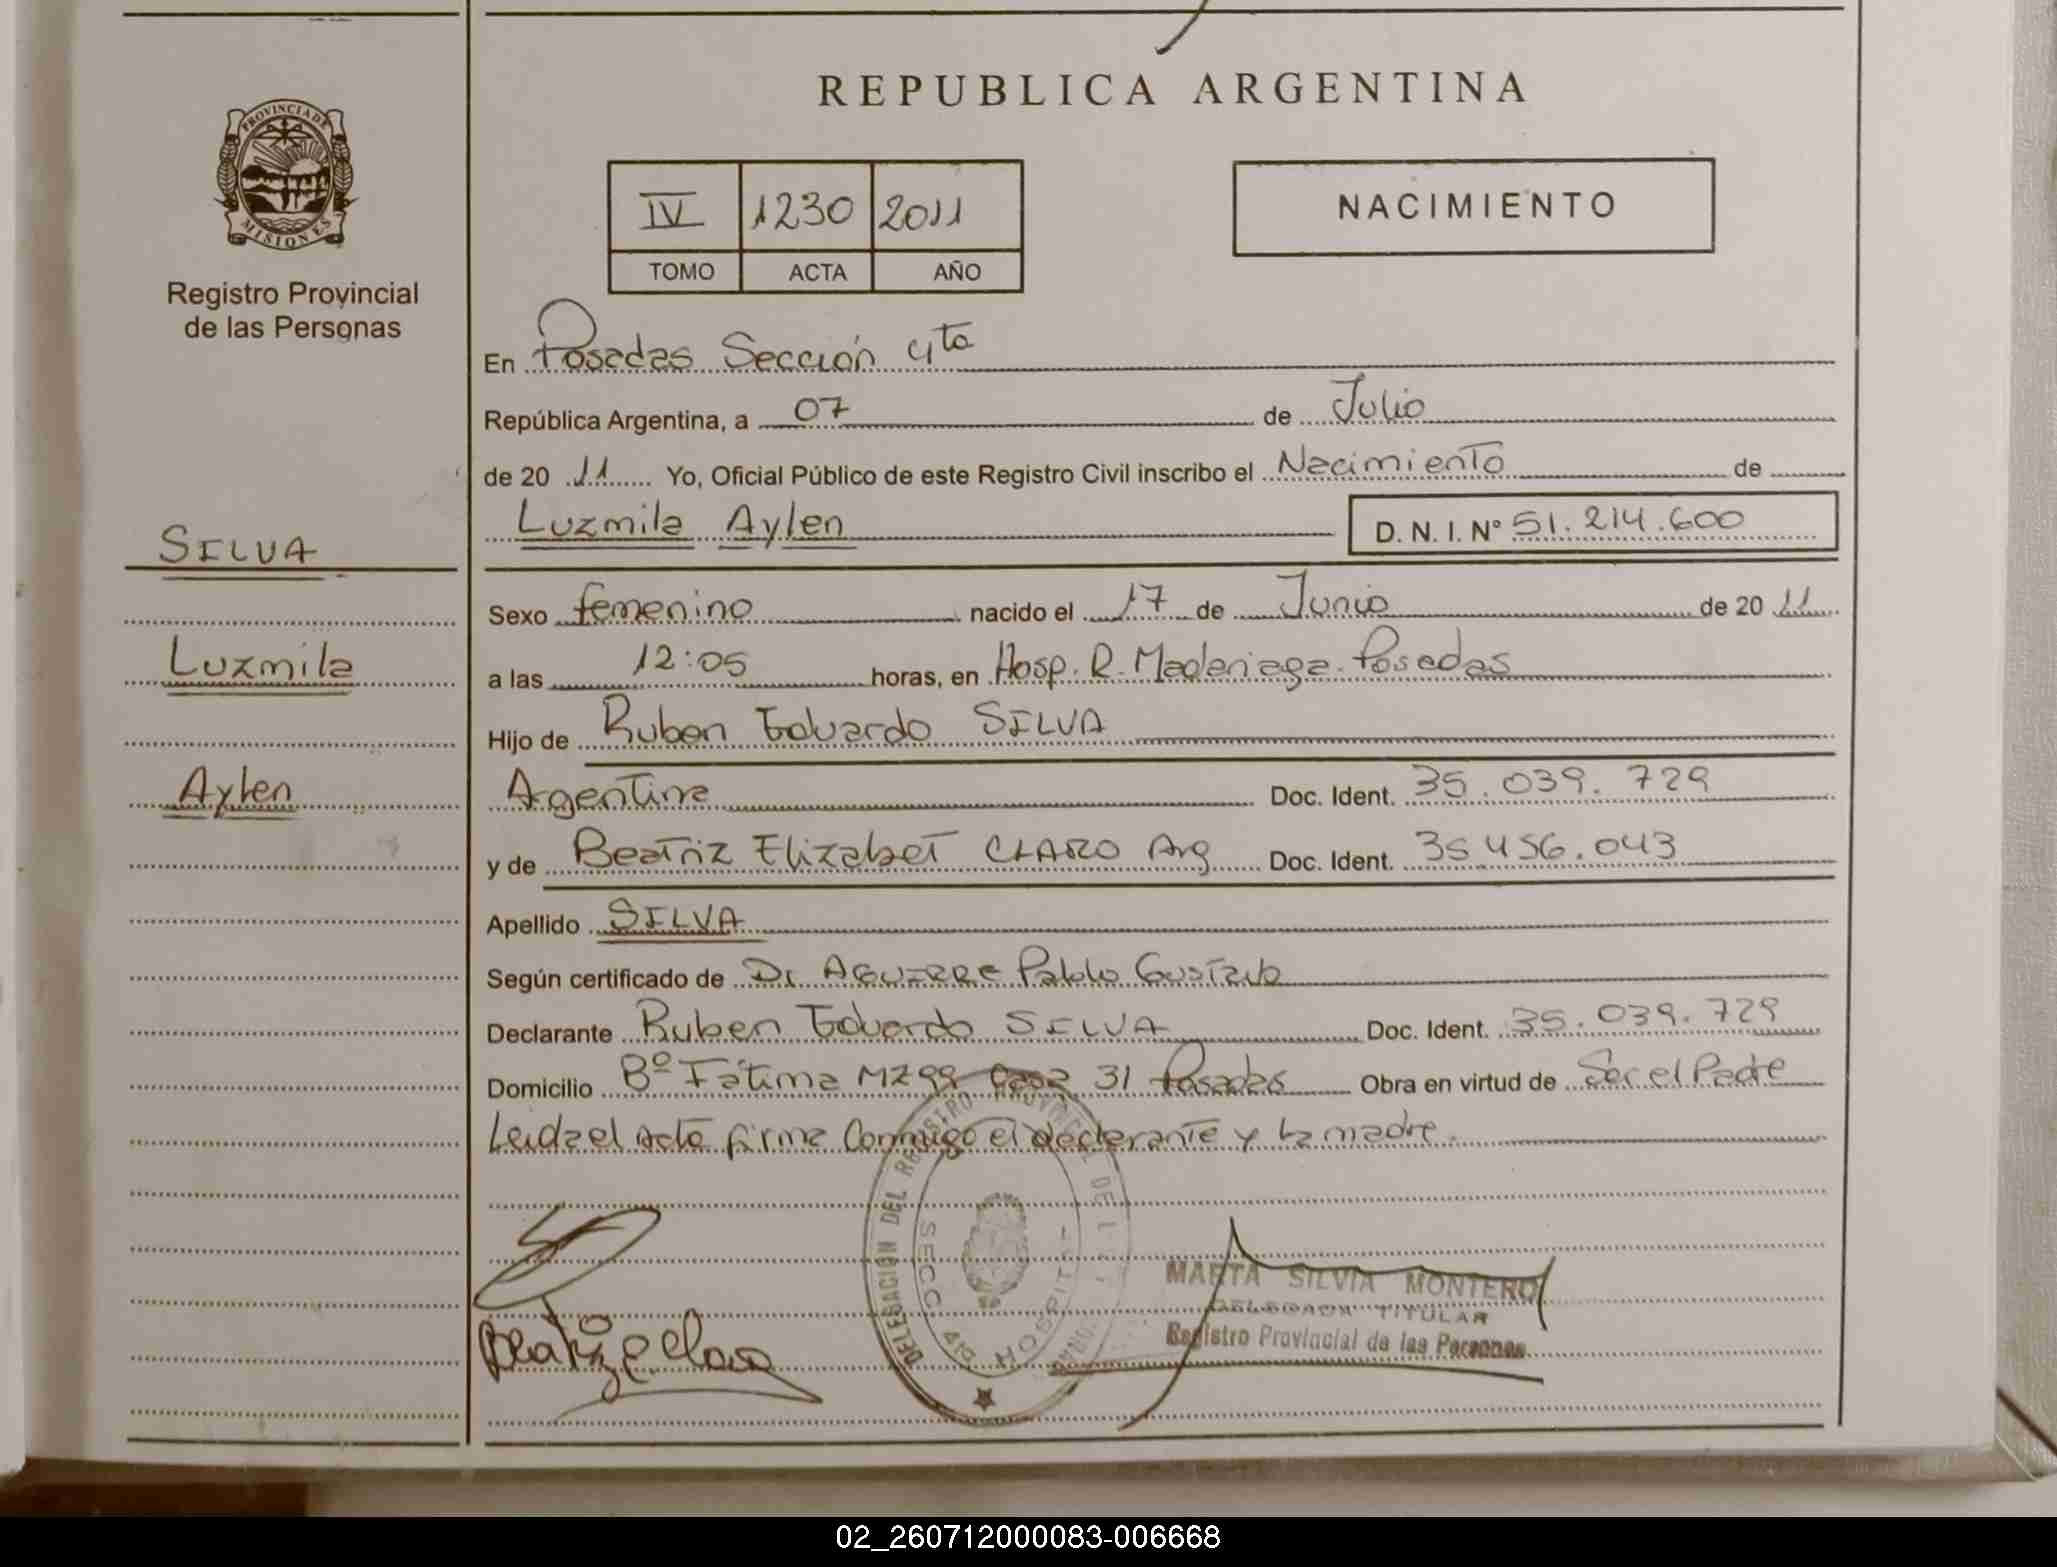 REPUBLICA ARGENTINA
PROVINCIA DE
MISIONES
Registro Provincial
de las Personas
IV 1230 2011
TOMO ACTA AÑO
NACIMIENTO
En Posadas Sección 4ta
República Argentina, a 07 de Julio
de 20 11 Yo, Oficial Público de este Registro Civil inscribo el Nacimiento de
Luzmila Aylen D. N. I. Nº 51.214.600
SILVA
Luzmila
Aylen
Sexo femenino nacido el 17 de Junio de 20 11
a las 12:05 horas, en Hosp. R. Madariaga. Posadas
Hijo de Ruben Eduardo SILVA
Argentina Doc. Ident. 35.039.729
y de Beatriz Elizabet CLARO Arg Doc. Ident. 35.456.043
Apellido SILVA
Según certificado de Dr AGUIRRE Pablo Gustavo
Declarante Ruben Eduardo SILVA Doc. Ident. 35.039.729
Domicilio Bº Fátima MZ 99 Casa 31 Posadas Obra en virtud de Ser el Padre
Leida el acta firma conmigo el declarante y la madre.
DELEGACION DEL REGISTRO PROVINCIAL DE
SECC 4ta HOSPITAL
MARTA SILVIA MONTERO
DELEGADA TITULAR
Registro Provincial de las Personas
Beatriz e Claro
02_260712000083-006668